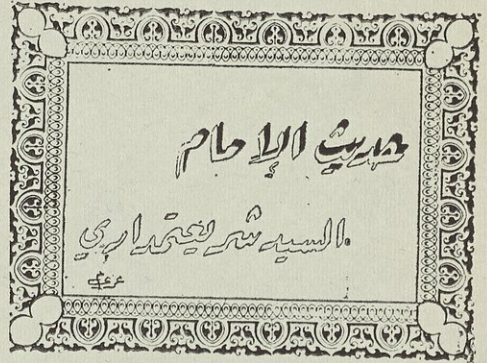 حديث الإمام
السيد شريعتمداري